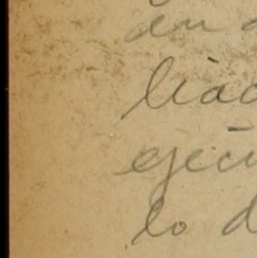 en
liac
ejecu
lo d